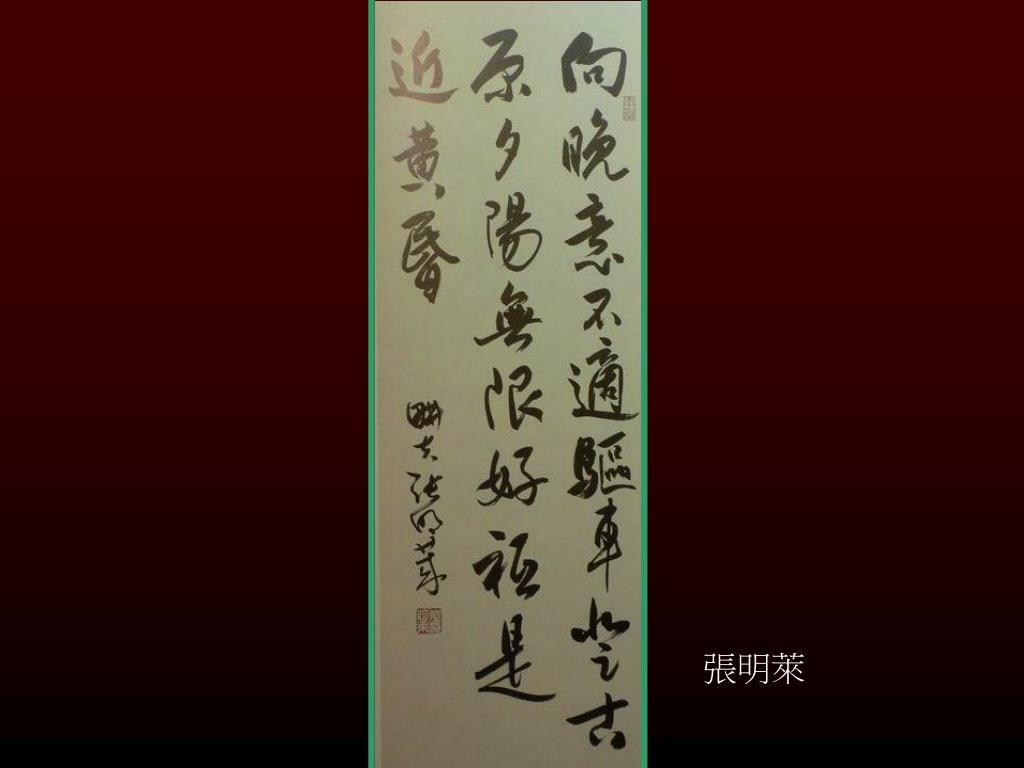 向晚意不適驅車登古
原夕陽無限好祇是
近黃昏
張明萊
張明萊